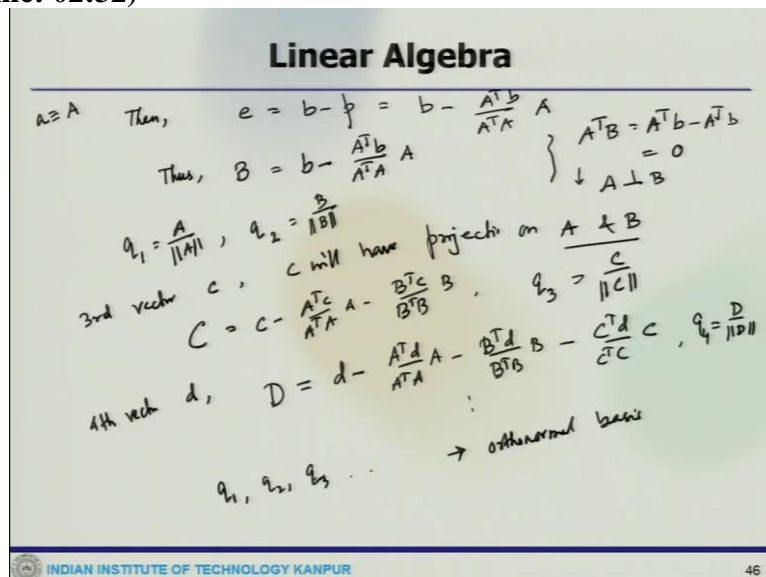 Linear Algebra
a ≡ A Then, e = b - p = b - \frac{A^T b}{A^T A} A
Thus, B = b - \frac{A^T b}{A^T A} A } A^T B = A^T b - A^T b
= 0
↓ A ⊥ B
q_1 = \frac{A}{||A||} , q_2 = \frac{B}{||B||}
3rd vector c , c will have projectn on A & B
C = c - \frac{A^T c}{A^T A} A - \frac{B^T c}{B^T B} B , q_3 = \frac{C}{||C||}
4th vectr d, D = d - \frac{A^T d}{A^T A} A - \frac{B^T d}{B^T B} B - \frac{C^T d}{C^T C} C , q_4 = \frac{D}{||D||}
⋮
q_1, q_2, q_3 .. → orthonormal basis
INDIAN INSTITUTE OF TECHNOLOGY KANPUR 46